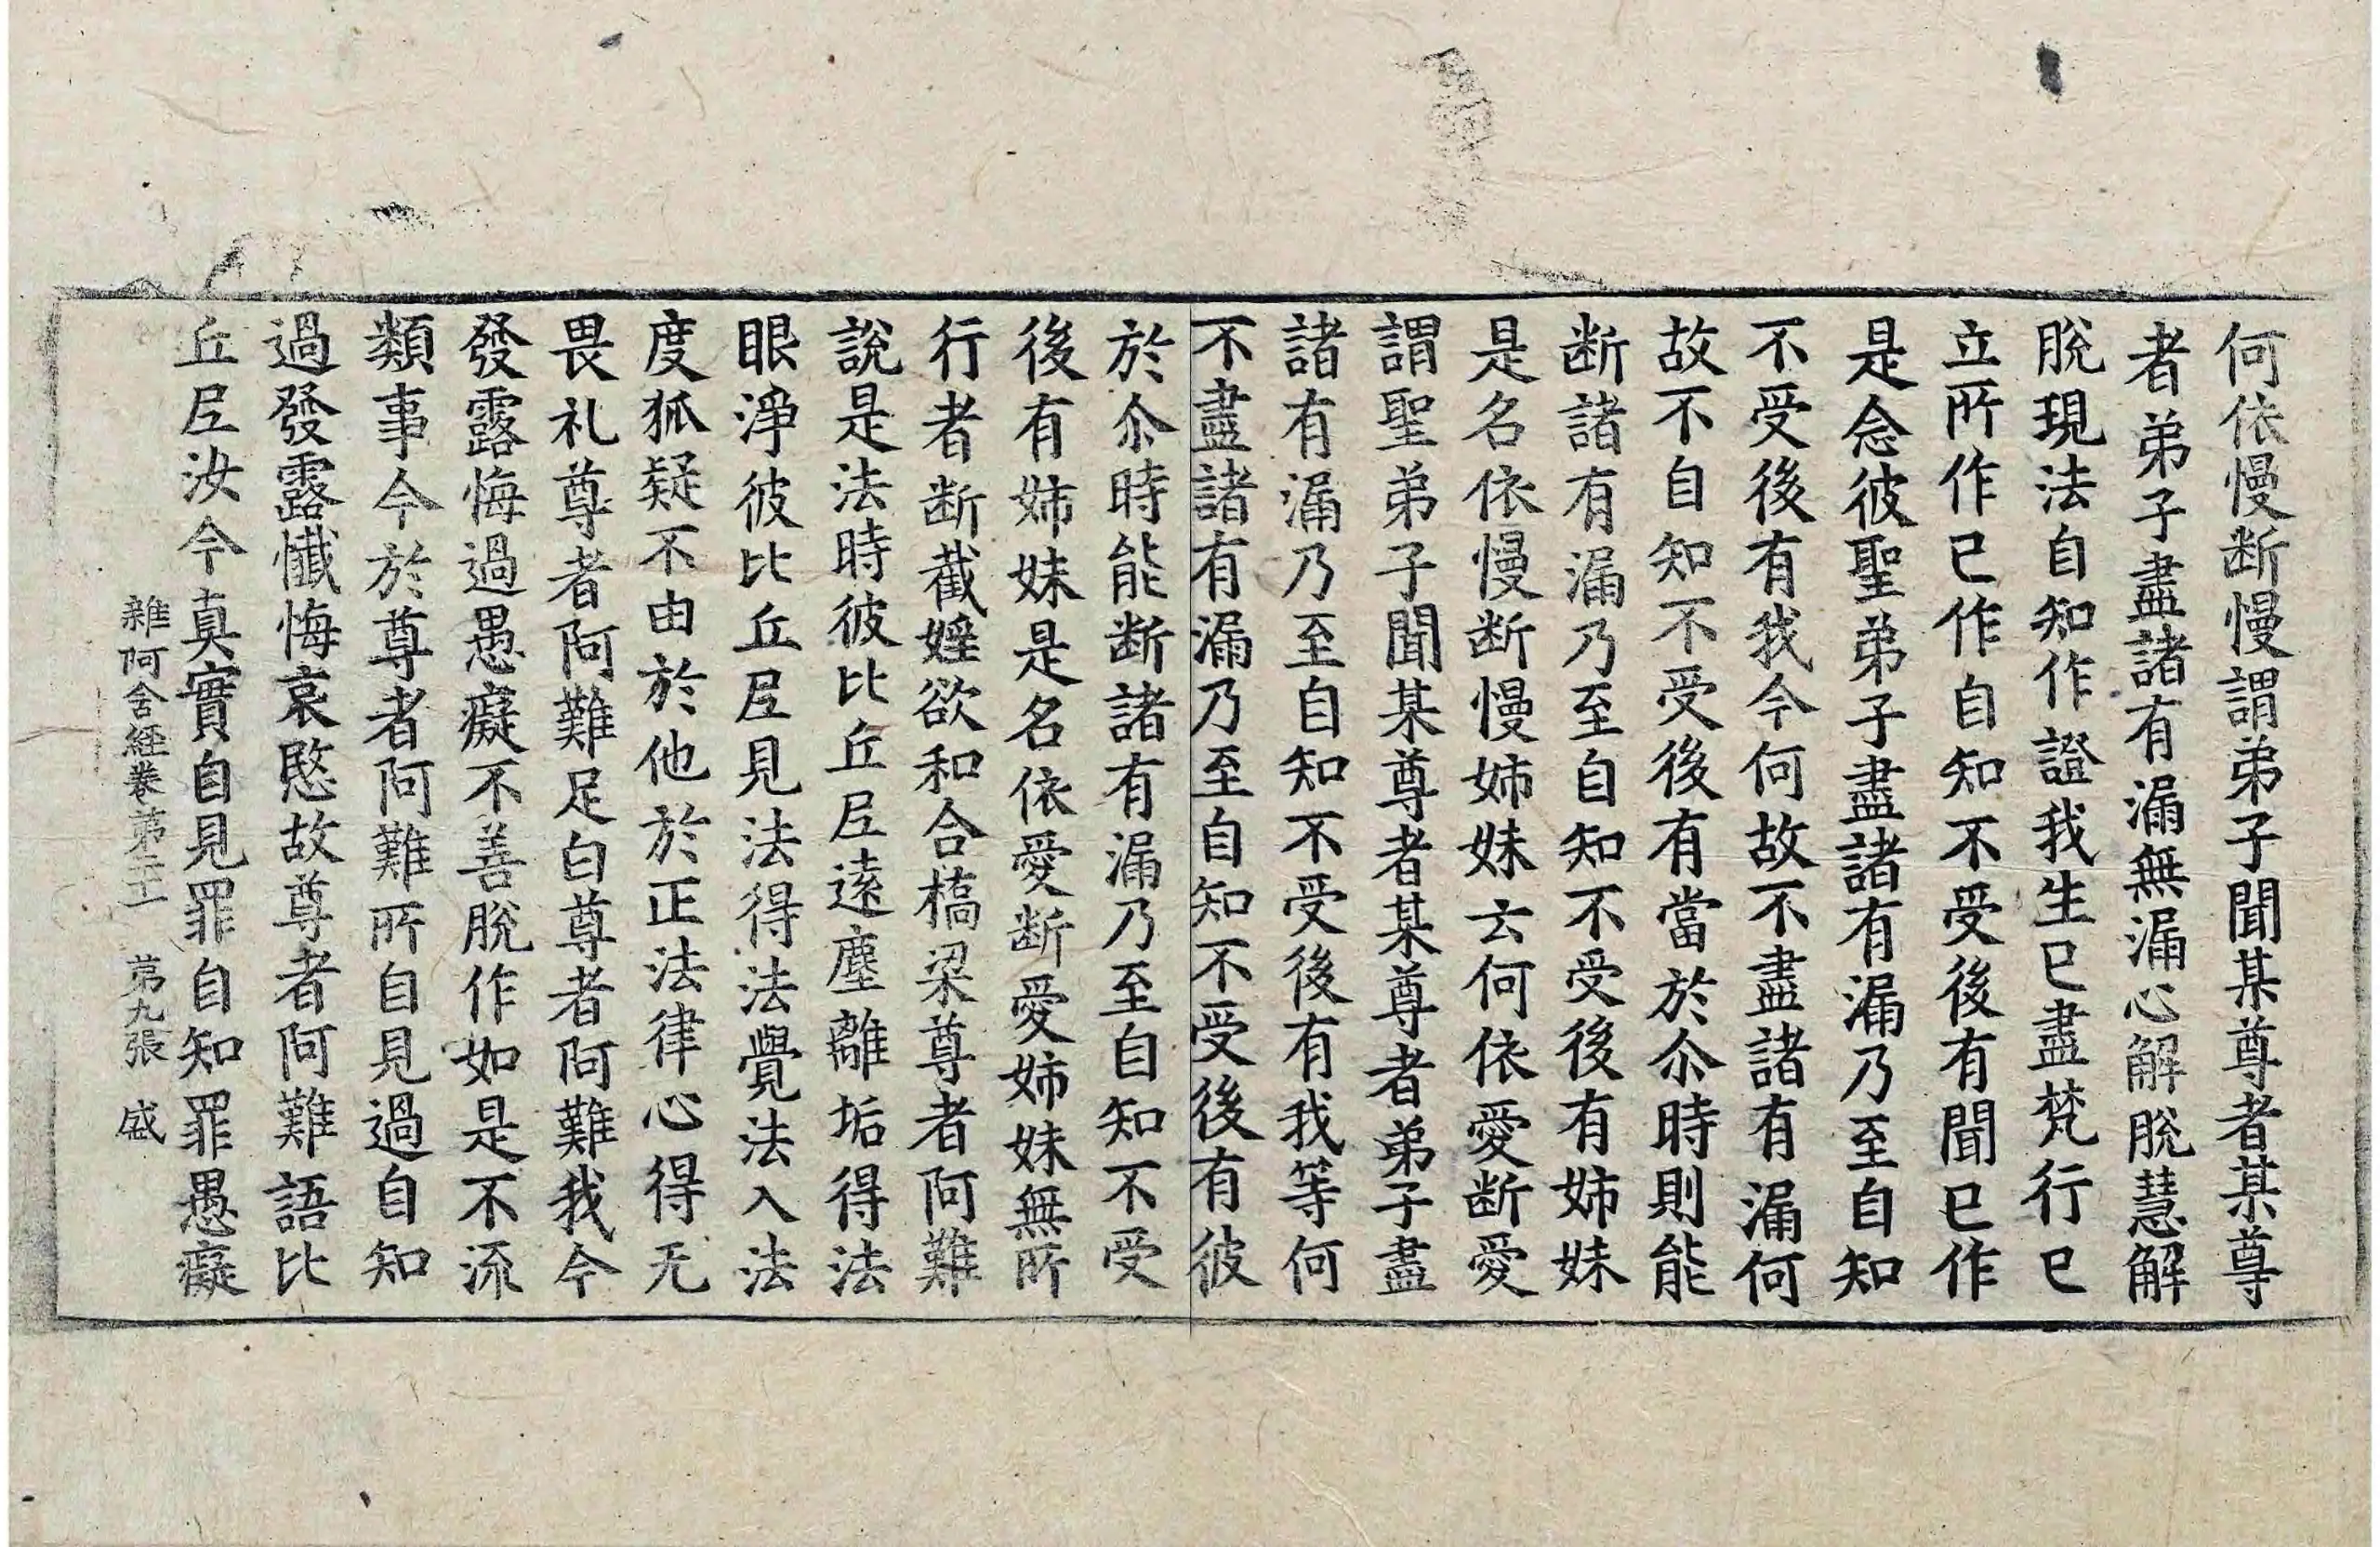 何依慢断慢謂弟子聞某尊者某尊
者弟子盡諸有漏無漏心解脫慧解
脫現法自知作證我生已盡梵行已
立所作已作自知不受後有聞已作
是念彼聖弟子盡諸有漏乃至自知
不受後有我今何故不盡諸有漏何
故不自知不受後有當於尒時則能
断諸有漏乃至自知不受後有姉妹
是名依慢断慢姉妹云何依愛断愛
謂聖弟子聞某尊者某尊者弟子盡
諸有漏乃至自知不受後有我等何
不盡諸有漏乃至自知不受後有彼
於尒時能断諸有漏乃至自知不受
後有姉妹是名依愛断愛姉妹無所
行者断截婬欲和合橋梁尊者阿難
說是法時彼比丘𡰱遠塵離垢得法
眼淨彼比丘𡰱見法得法覺法入法
度狐疑不由於他於正法律心得无
畏礼尊者阿難足白尊者阿難我今
發露悔過愚癡不善脫作如是不流
類事今於尊者阿難所自見過自知
過發露懺悔哀愍故尊者阿難語比
丘𡰱汝今真實自見罪自知罪愚癡
雜阿含經卷第二十一 第九張 盛